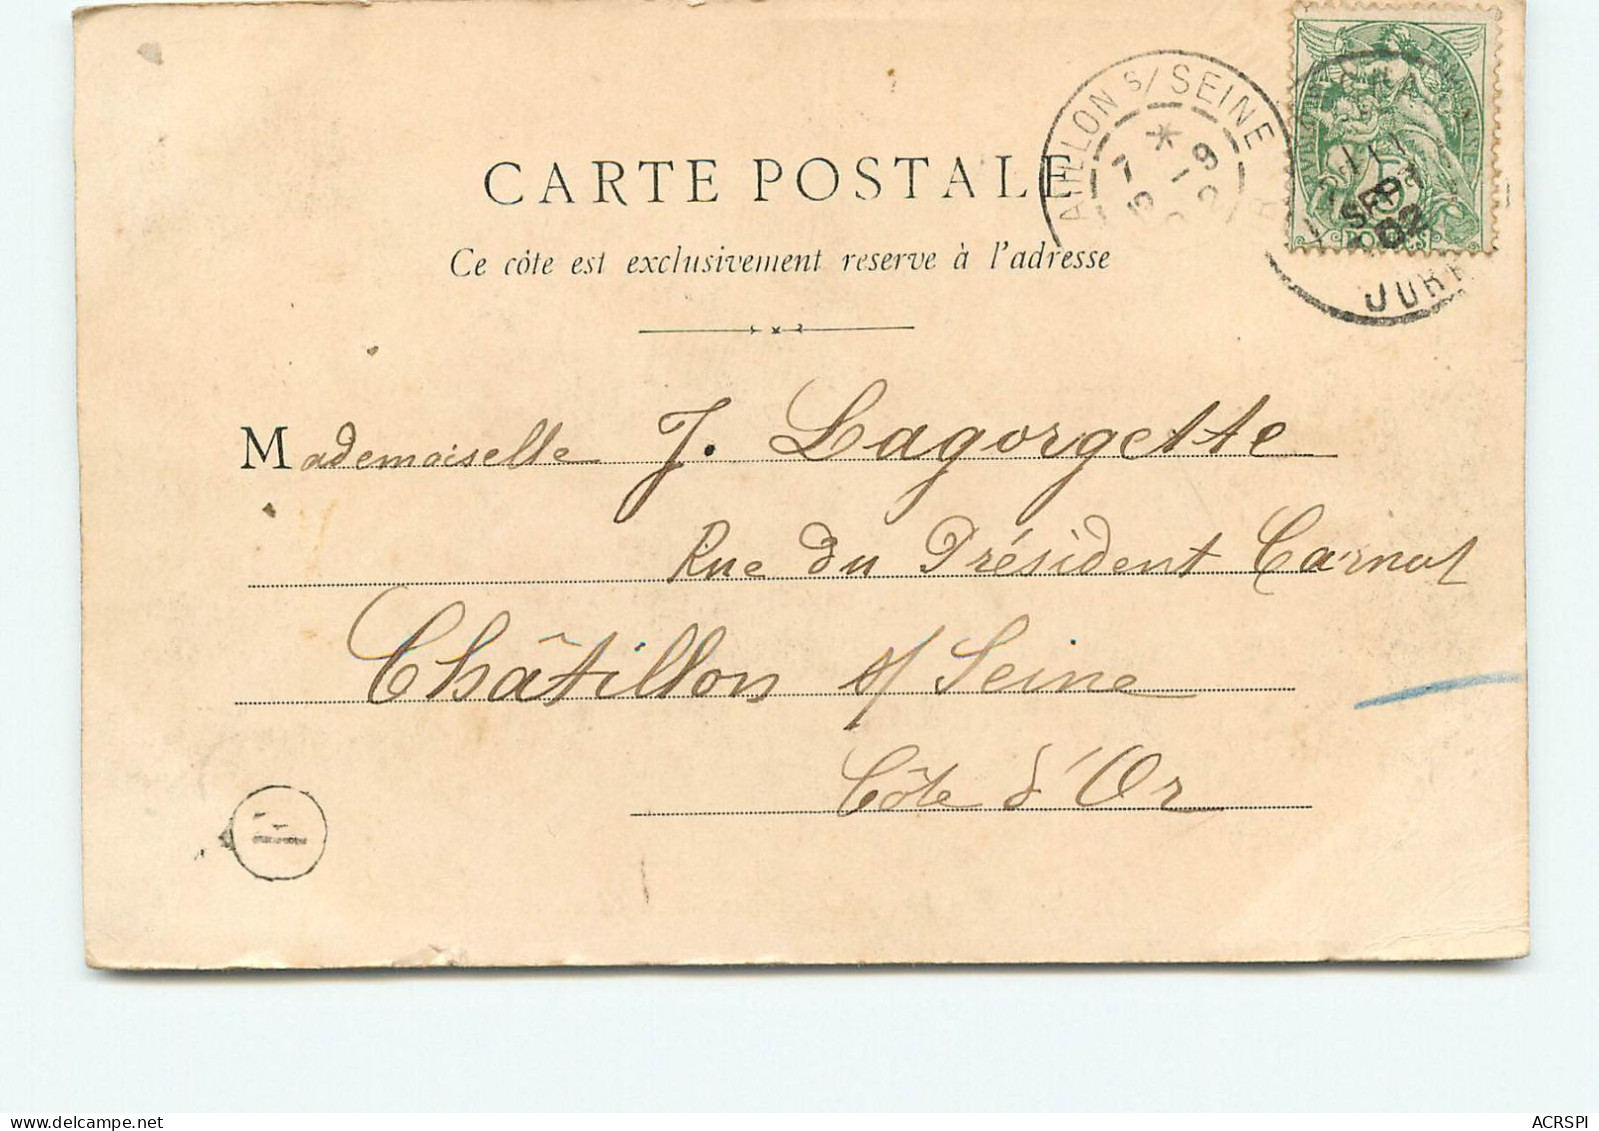 CARTE POSTALE
Ce côte est exclusivement reserve à l'adresse
Mademoiselle J. Lagorgette
Rue du Président Carnot
Châtillon s/ Seine
Côte d'Or
LON s/ SEINE
7 * 9
SEPT
02
JURA
ACRSPI